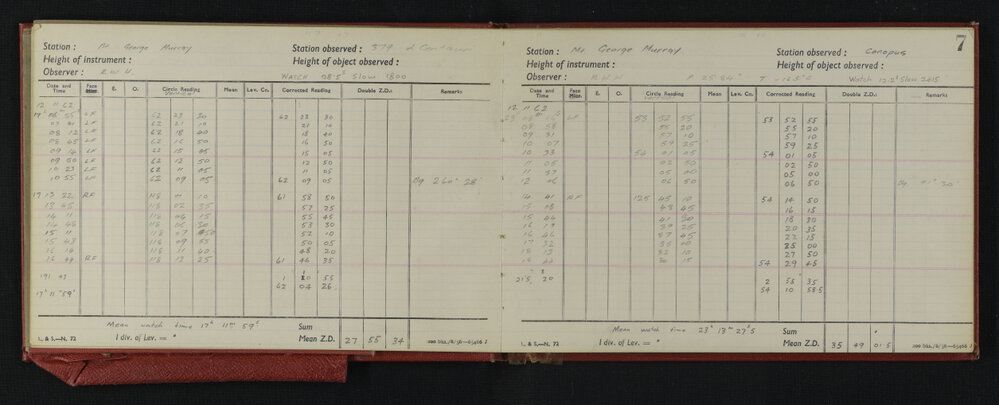 Station : Mt George Murray Station observed : 379 d Centauri
Height of instrument : Height of object observed :
Observer : R W H Watch 08.5ˢ Slow 1800
Date and Time Face Micr. E. O. Circle Reading Vertical Mean Lev. Cn. Corrected Reading Double Z.D. Remarks
12 11 62
17ʰ 06ᵐ 55ˢ LF 62 23 30 62 23 30
07 41 LF 62 21 10 21 10
08 12 LF 62 18 40 18 40
08 45 LF 62 16 50 16 50
09 14 LF 62 15 05 15 05
09 50 LF 62 12 50 12 50
10 23 LF 62 11 05 11 05
10 55 LF 62 09 05 62 09 05 Bg 260° 28'
17 13 22 RF 118 01 10 61 58 50
13 45 118 02 35 57 25
14 11 118 04 15 55 45
14 45 118 06 30 53 30
15 11 118 07 50 52 10
15 43 118 09 55 50 05
16 14 118 11 40 48 20
16 44 RF 118 13 25 61 46 35
191 47 1 20 55
17ʰ 11 59' 62 04 26
Mean watch time 17ʰ 11ᵐ 59ˢ Sum
L. & S.—N. 72 1 div. of Lev. = " Mean Z.D. 27 55 34 200 bks./8/56—65466 J
7
Station : Mt George Murray Station observed : Canopus
Height of instrument : Height of object observed :
Observer : R W H P 25.84" T -16.5°C Watch 12.2ˢ Slow 2415
Date and Time Face Micr. E. O. Circle Reading Vertical Mean Lev. Cn. Corrected Reading Double Z.D. Remarks
12 11 62
23ʰ 08ᵐ LF 53 52 55 53 52 55
08 58 55 20 55 20
09 31 57 10 57 10
10 07 59 25 59 25
10 33 54 01 05 54 01 05
11 05 02 50 02 50
11 37 05 00 05 00
12 06 06 50 06 50 Bg 30'
14 41 RF 125 45 10 54 14 50
15 08 43 45 16 15
15 46 41 30 18 30
16 19 39 25 20 35
16 46 37 45 22 15
17 32 35 00 25 00
18 13 32 10 27 50
18 44 30 15 54 29 45
215 20 2 58 35
54 10 58.5
Mean watch time 23ʰ 13ᵐ 27ˢ.5 Sum
L. & S.—N. 72 1 div. of Lev. = " Mean Z.D. 35 49 01.5 200 bks./8/56—65466 J